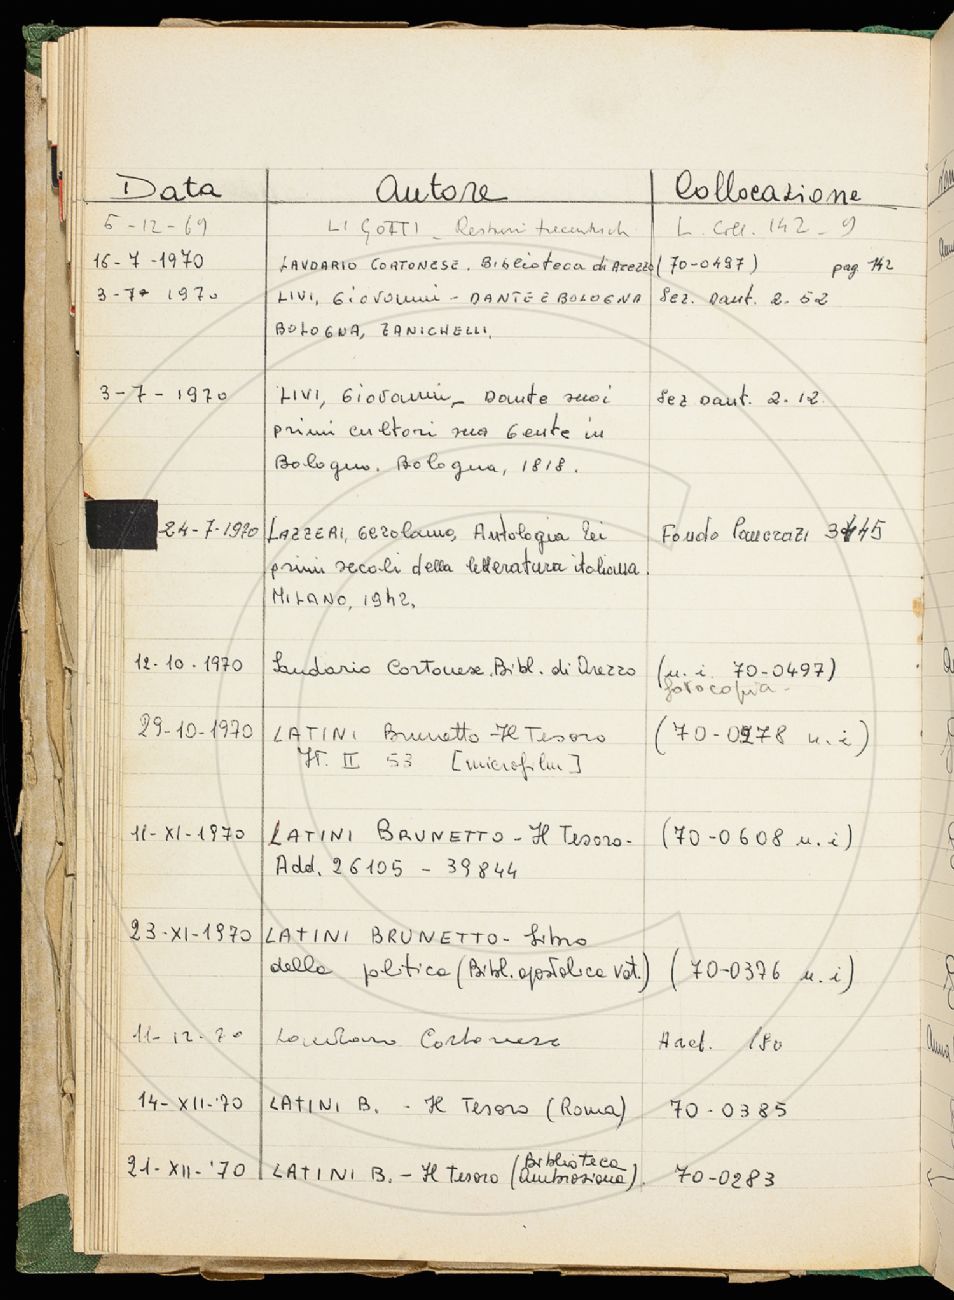 Data Autore Collocazione
5-12-69 LI GOTTI - L. Coll. 142 - 9
16-7-1970 LAUDARIO CORTONESE. Biblioteca di Arezzo (70-0497) pag. 142
3-7-1970 LIVI, Giovanni - DANTE E BOLOGNA Sez. Dant. 2. 52
BOLOGNA, ZANICHELLI.
3-7-1970 LIVI, Giovanni - Dante suoi Sez Dant. 2. 12.
primi cultori sua Gente in
Bologna. Bologna, 1818.
24-7-1970 LAZZERI, Gerolamo, Antologia dei Fondo Pancrazi
primi secoli della letteratura italiana.
MILANO, 1942.
12-10-1970 Laudario Cortonese. Bibl. di Arezzo (u. i. 70-0497)
fotocopia -
29-10-1970 LATINI Brunetto - Il Tesoro (70-0278 u. i)
It. II 53 [microfilm]
11-XI-1970 LATINI BRUNETTO - Il Tesoro - (70-0608 u. i)
Add. 26105 - 39844
23-XI-1970 LATINI BRUNETTO - Libro
della politica (Bibl. apostolica Vat.) (70-0376 u. i)
11-12-70 Laudario Cortonese 180
14-XII-'70 LATINI B. - Il Tesoro (Roma) 70-0385
21-XII-'70 LATINI B. - Il Tesoro (Biblioteca
Ambrosiana). 70-0283